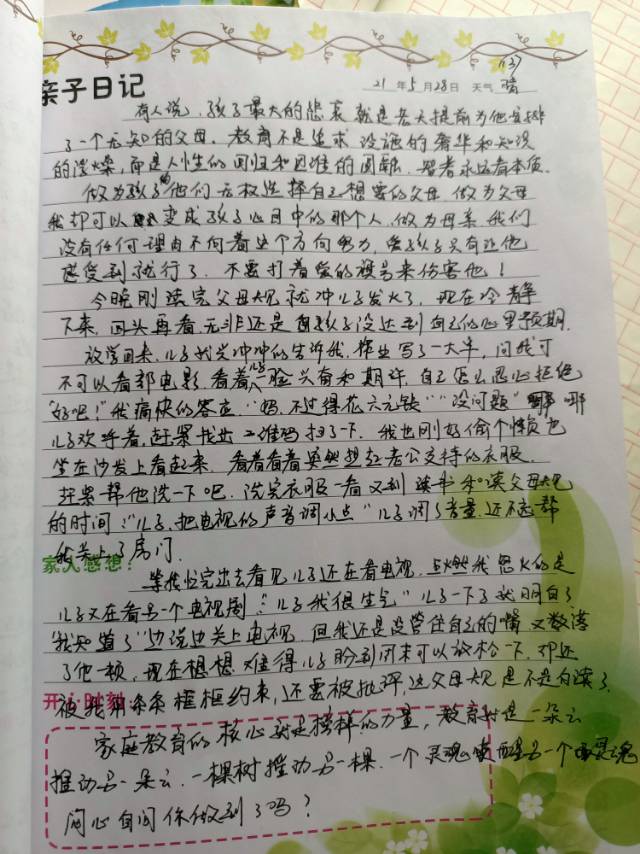 (3)
亲子日记 21年5月28日 天气 晴
有人说,孩子最大的悲哀就是老天提前为他安排
了一个无知的父母。教育不是追求设施的奢华和知识
的深燥,而是人性的回归和思维的圆融,智者永远看本质。
做为孩子他们无权选择自己想要的父母,做为父母
我却可以变成孩子心目中的那个人,做为母亲,我们
没有任何理由不向着这个方向努力,爱孩子只有让他
感受到就行了,不要打着爱的旗号来伤害他!
今晚刚读完父母规就冲儿子发火了,现在冷静
下来,回头再看,无非还是因孩子没达到自己的心里预期.
放学回来,儿子就兴冲冲的告诉我,作业写了一大半,问我可
不可以看部电影,看着儿子一脸兴奋和期许,自己怎么忍心拒绝
"好吧!"我痛快的答应,"妈,不过得花六元钱""没问题"哪
儿子欢呼着,赶紧找出二维码扫了下.我也刚好偷个懒也
坐在沙发上看起来,看着看着突然想起老公交待的衣服.
赶紧帮他洗一下吧.洗完衣服一看又到读书和读父母规
的时间:"儿子,把电视的声音调小点"儿子调了音量,还不忘帮
我关上了房门.
家人感想:
等我忙完出去看见儿子还在看电视,点燃我怒火的是
儿子又在看另一个电视剧:"儿子我很生气"儿子一下子就明白了
"我知道了"边说边关上电视.但我还是没管住自己的嘴又数落
了他一顿,现在想想难得儿子盼到周末可以放松一下,却还
开心时刻:
被我用条条框框约束,还要被批评,这父母规是不是白读了.
家庭教育的核心就是榜样的力量,教育就是一朵云
推动另一朵云.一棵树摇动另一棵.一个灵魂唤醒另一个灵魂
问心自问你做到了吗?